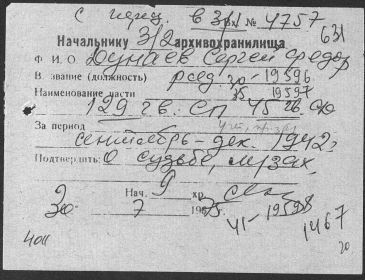 с перец. в 3/1 рх № 4757
631
Начальнику 3/2 архивохранилища
Ф И О Дунаев Сергей Федор
В. звание (должность) ряд. 30 - 19596
Наименование части 35 19597
129 гв. СП 45 гв СД
За период
сентябрь - дек. 1942 г
Подтвердить: О судьбе,
9 Нач. 9 хр.
30 7 1975 41 - 19598
1467
4011 20